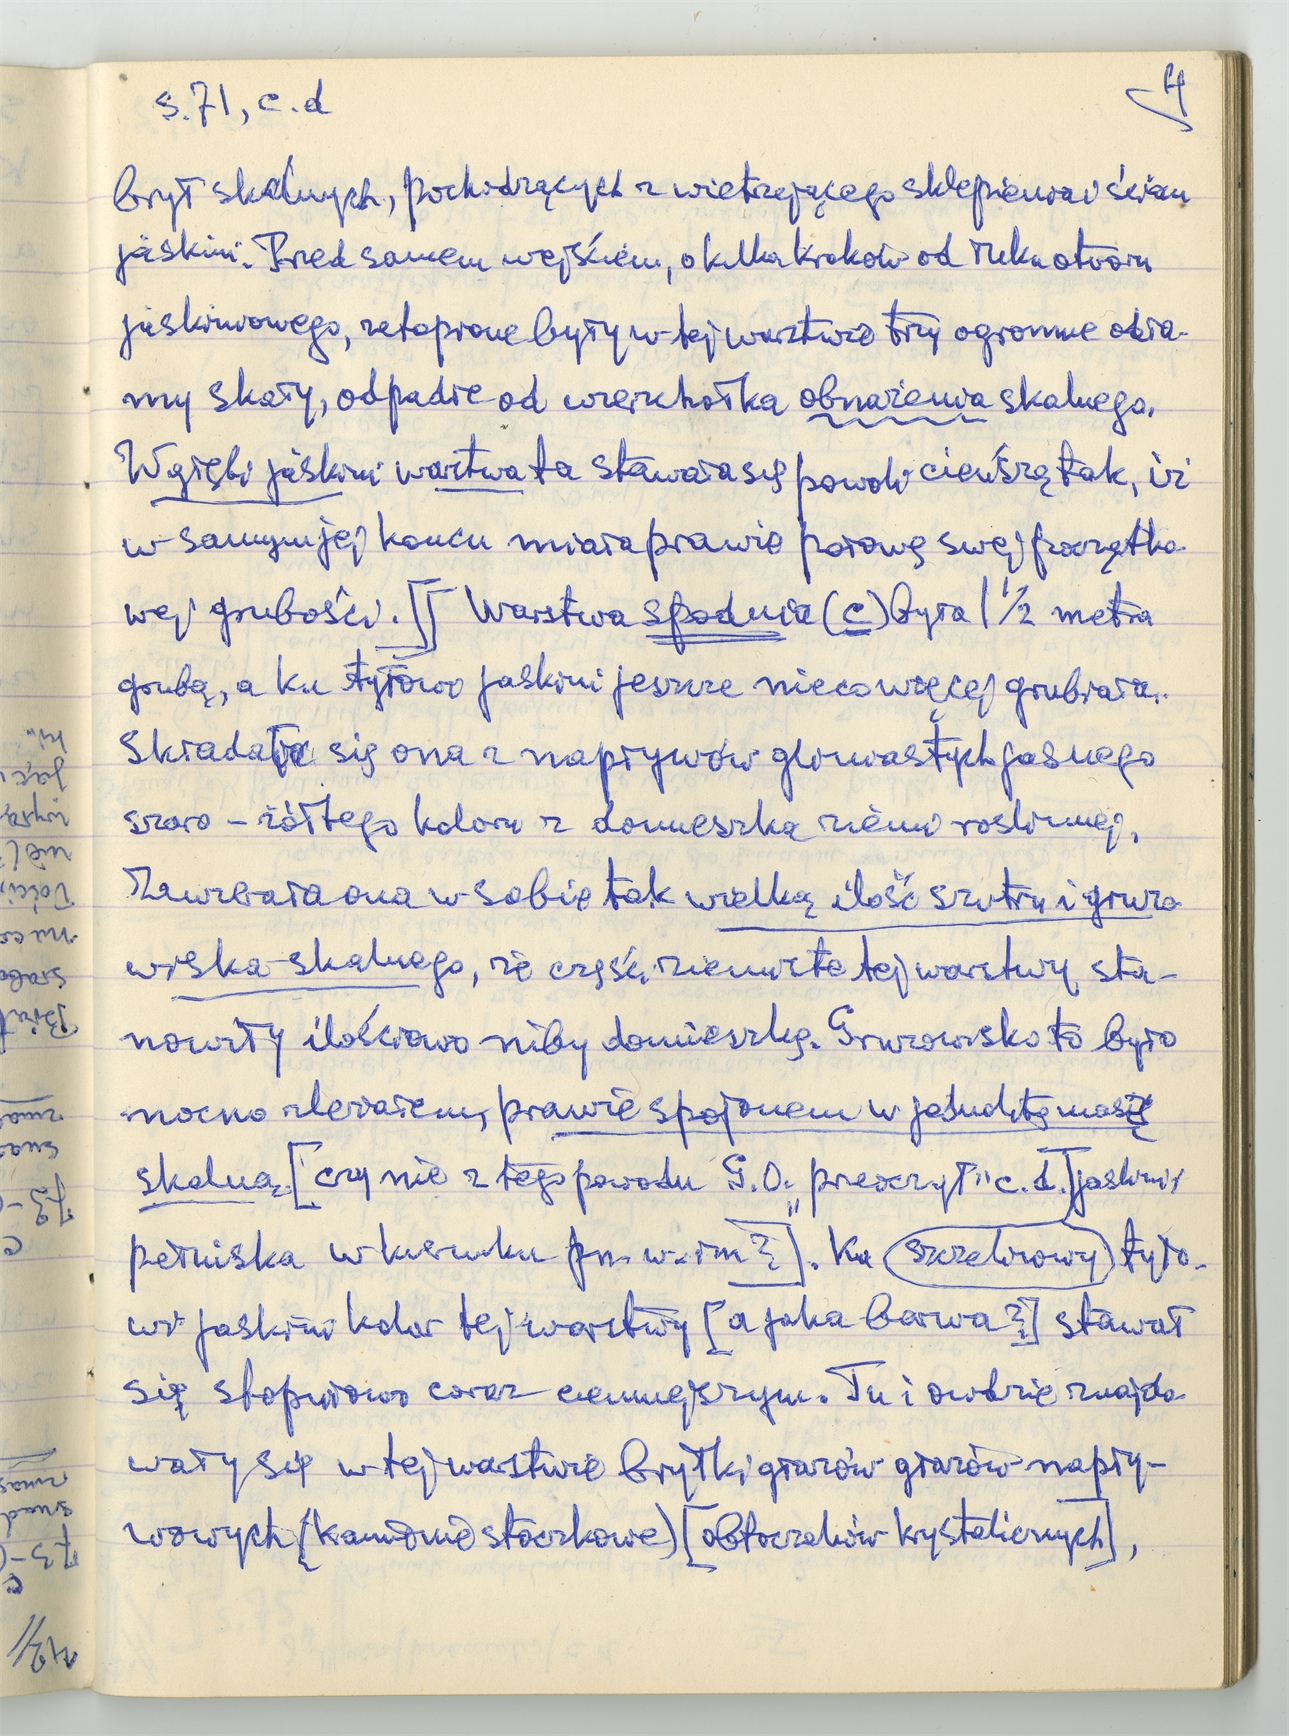 s. 71, c.d
4
brył skalnych, pochodzących z wietrzejącego sklepienia i ścian
jaskini. Przed samem wejściem, o kilka kroków od otworu
jaskiniowego, zatopione były w tej warstwie trzy ogromne odła-
my skały, odpadłe od wierzchołka obnażenia skalnego.
W głębi jaskini warstwa ta stawała się powoli cieńszą tak, iż
w samym jej końcu miała prawie połowę swej początko-
wej grubości.]] Warstwa spodnia (c) była 1 1/2 metra
grubą, a ku tyłowi jaskini jeszcze nieco więcej grubiała.
Składała się ona z napływów gliniastych jasnego
szaro-żółtego koloru z domieszką ziemi roślinnej,
Zawierała ona w sobie tak wielką ilość szutru i gruzo
wiska skalnego, że części ziemiste tej warstwy sta-
nowiły ilościowo niby domieszkę. Gruzowisko to było
mocno zlewałem, prawie spojonem w jednolitą masę
skalną. [czy nie z tego powodu G.O. „przeoczył" c.d. jaskini
pełniska w kierunku pn. w-im?]. Ku szczelinowy tyło-
wi jaskini kolor tej warstwy [a jaka barwa?] stawał
się stopniowo coraz ciemniejszym. Tu i owdzie znajdo
wały się w tej warstwie bryłki głazów głazów napły-
wowych (kamienie stoczkowe) [obtoczaków krystalicznych],